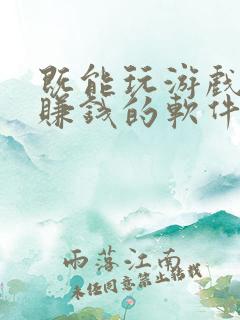 既能玩游戏
賺錢的軟件
雨落江南
未经同意禁止转载